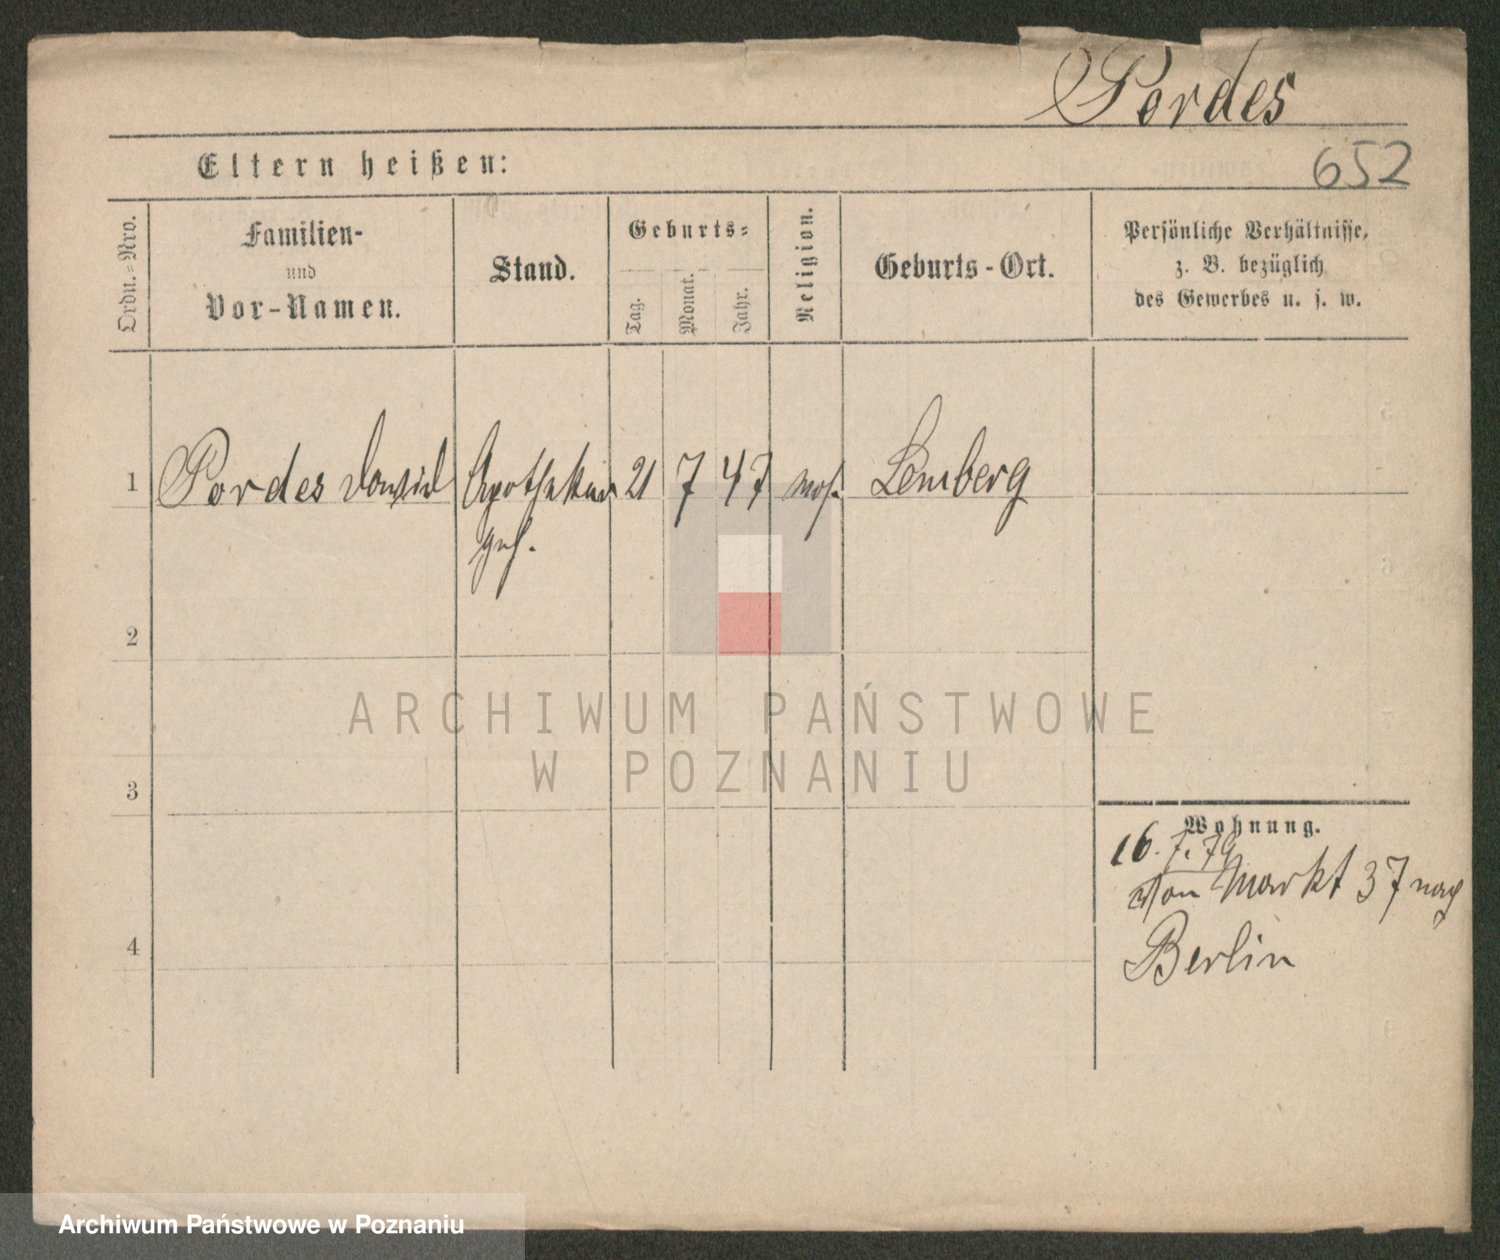 Pordes
Eltern heißen:
652
Ordn.-Nro.
Familien-
und
Vor-Namen.
Stand.
Geburts-
Tag.
Monat.
Jahr.
Religion.
Geburts-Ort.
Persönliche Verhältnisse,
z. B. bezüglich
des Gewerbes u. s. w.
1 Pordes David Apotheker 21 7 47 mos. Lemberg
geh.
2
3
4
Wohnung.
16. 7. 79
Von Markt 37 nach
Berlin
ARCHIWUM PAŃSTWOWE
W POZNANIU
Archiwum Państwowe w Poznaniu